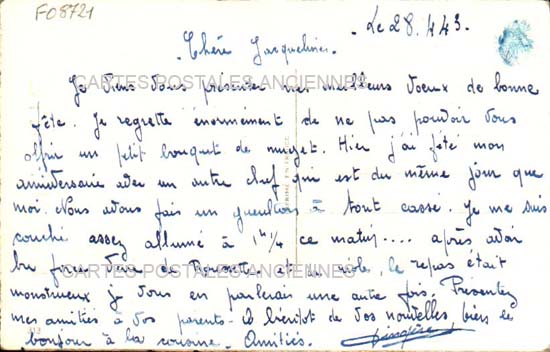 F08721
Le 28.4.43.
Chère Jacqueline.
CARTES POSTALES ANCIENNES
Je viens vous présenter mes meilleurs voeux de bonne
fête. Je regrette énormement de ne pas pouvoir vous
offrir un petit bouquet de muguet. Hier j'ai fêté mon
anniversaire avec un autre chef qui est du même jour que
moi. Nous avons fais un gueuleton à tout cassé. Je me suis
couché assez allumé à 1h 1/4 ce matin.... après avoir
bu
CARTES POSTALES ANCIENNES
le repas était
monstrueux je vous en parlerais une autre fois. Présentez
mes amitiés à vos parents. à bientôt de vos nouvelles bien le
bonjour à la cousine. Amitiés.